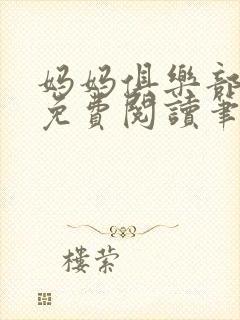 妈妈俱樂部
免費閱讀筆
樓萦